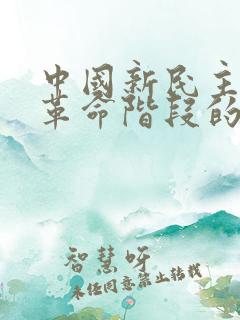 中國新民主
革命階段的
智慧呀
未经同意禁止转载